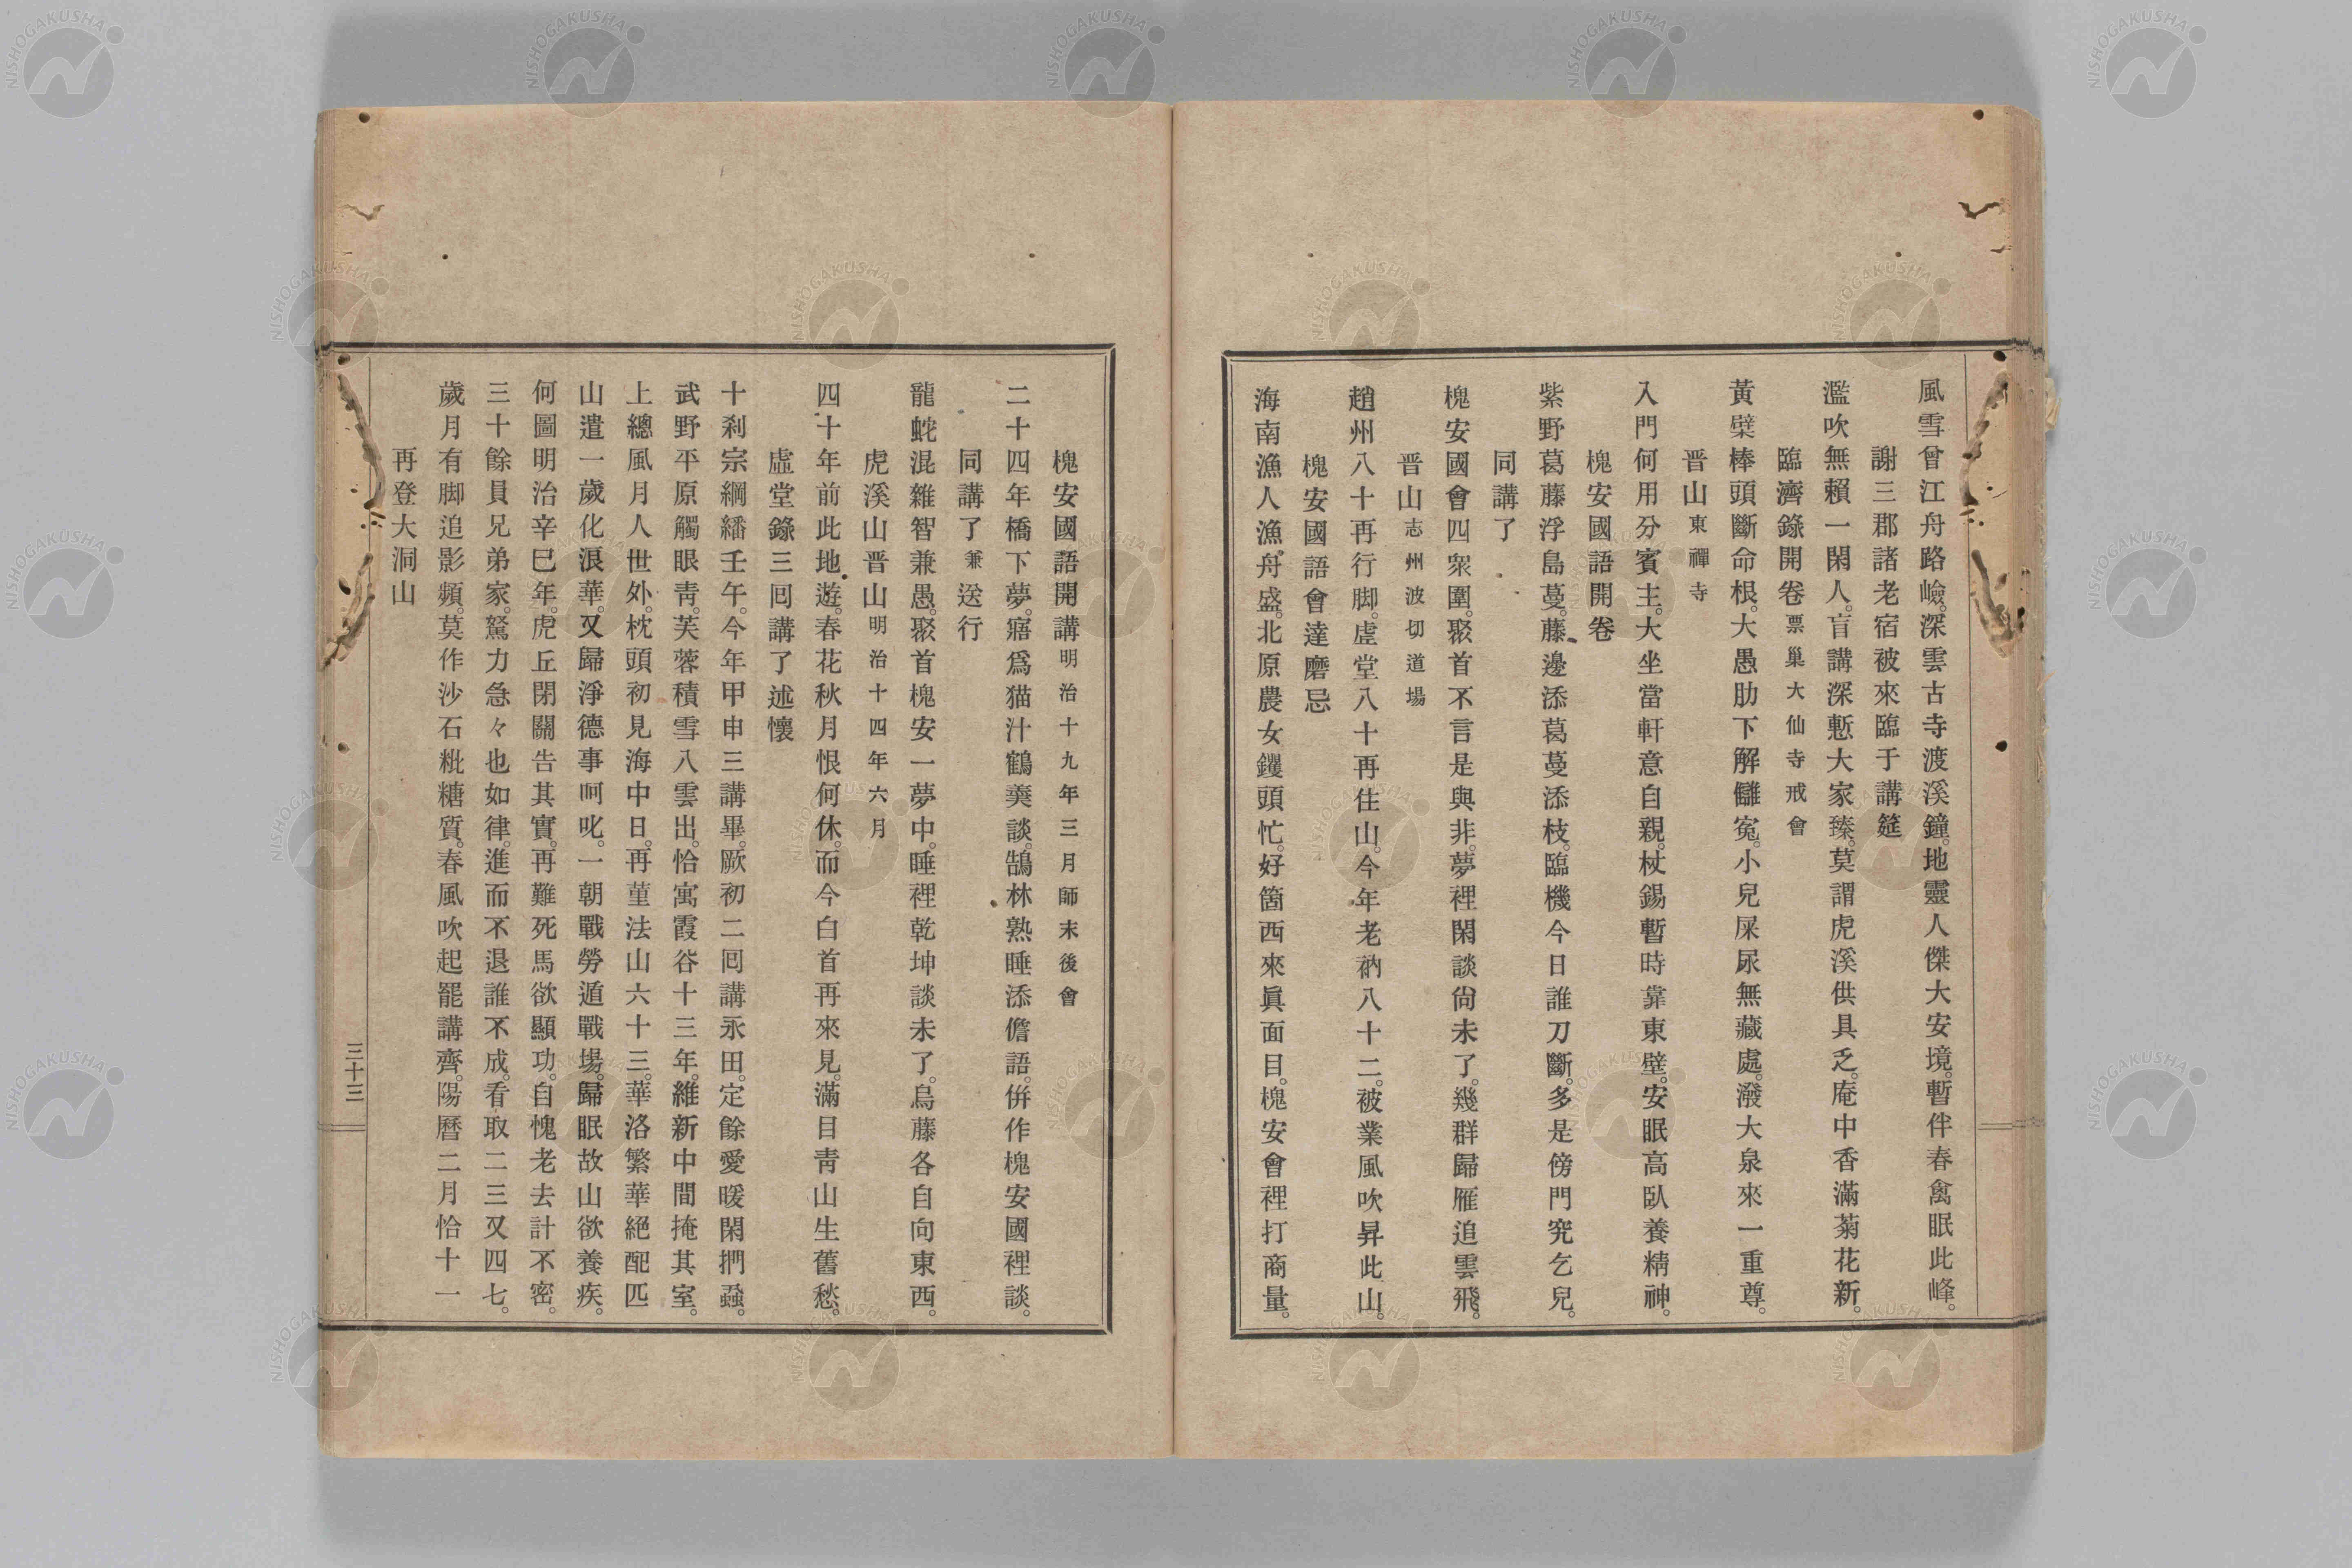 風雪曾江舟路嶮。深雲古寺渡溪鐘。地靈人傑大安境。暫伴春禽眠此峰。
謝三郡諸老宿被來臨于講筵
濫吹無賴一閑人。盲講深慙大家臻。莫謂虎溪供具乏。庵中香滿菊花新。
臨濟錄開卷票巢大仙寺戒會
黃檗棒頭斷命根。大愚肋下解讎寃。小兒屎尿無藏處。潑大泉來一重尊。
晋山東禪寺
入門何用分賓主。大坐當軒意自親。杖錫暫時靠東壁。安眠高臥養精神。
槐安國語開卷
紫野葛藤浮島蔓。藤邊添葛蔓添枝。臨機今日誰刀斷。多是傍門究乞兒。
同講了
槐安國會四衆圍。聚首不言是與非。夢裡閑談尙未了。幾群歸雁追雲飛。
晋山志州波切道場
趙州八十再行脚。虛堂八十再住山。今年老衲八十二。被業風吹昇此山。
槐安國語會達磨忌
海南漁人漁舟盛。北原農女钁頭忙。好箇西來眞面目。槐安會裡打商量。
槐安國語開講明治十九年三月師末後會
二十四年橋下夢。寤爲猫汁鶴羮談。鵠林熟睡添儋語。倂作槐安國裡談。
同講了兼送行
龍蛇混雜智兼愚。聚首槐安一夢中。睡裡乾坤談未了。烏藤各自向東西。
虎溪山晋山明治十四年六月
四十年前此地遊。春花秋月恨何休。而今白首再來見。滿目靑山生舊愁。
虛堂錄三回講了述懷
十刹宗綱繙壬午。今年甲申三講畢。厥初二回講永田。定餘愛暖閑捫蝨。
武野平原觸眼靑。芙蓉積雪八雲出。恰寓霞谷十三年。維新中間掩其室。
上總風月人世外。枕頭初見海中日。再董法山六十三。華洛繁華絕配匹
山遣一歲化浪華。又歸淨德事呵叱。一朝戰勞遁戰場。歸眠故山欲養疾。
何圖明治辛巳年。虎丘閉關告其實。再難死馬欲顯功。自愧老去計不密。
三十餘員兄弟家。駑力急々也如律。進而不退誰不成。看取二三又四七。
歲月有脚追影頻。莫作沙石粃糖質。春風吹起罷講齊。陽曆二月恰十一
再登大洞山
三十三